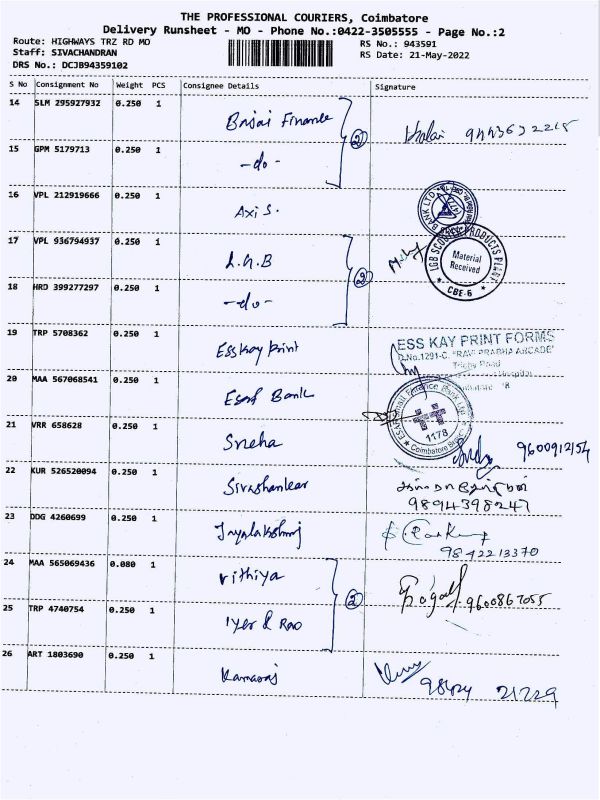 THE PROFESSIONAL COURIERS, Coimbatore
Delivery Runsheet - MO - Phone No.:0422-3505555 - Page No.:2
Route: HIGHWAYS TRZ RD MO
RS No.: 943591
Staff: SIVACHANDRAN
RS Date: 21-May-2022
DRS No.: DCJB94359102
S No Consignment No Weight PCS Consignee Details Signature
14 SLM 295927932 0.250 1 Bajai Finance 2
15 GPM 5179713 0.250 1 -do-
16 VPL 212919666 0.250 1 Axis.
17 VPL 936794937 0.250 1 L.G.B 2
LGB SCOOTER PRODUCTS PLANT
Material
Received
CBE-6
18 HRD 399277297 0.250 1 -do-
19 TRP 5708362 0.250 1 Esskay print
ESS KAY PRINT FORMS
D.No.1291-C, "RAVI PRABHA ARCADE"
Trichy Road
20 MAA 567068541 0.250 1 Esaf Bank
1178
21 VRR 658628 0.250 1 Sneha 9600912154
22 KUR 526520094 0.250 1 Sivashankar
9894398247
23 DDG 4260699 0.250 1 Jayalakshmi
9842213370
24 MAA 565069436 0.080 1 vithiya 2 9600867055
25 TRP 4740754 0.250 1 Iyer & Rao
26 ART 1803690 0.250 1 Kamaraj
98424 21729